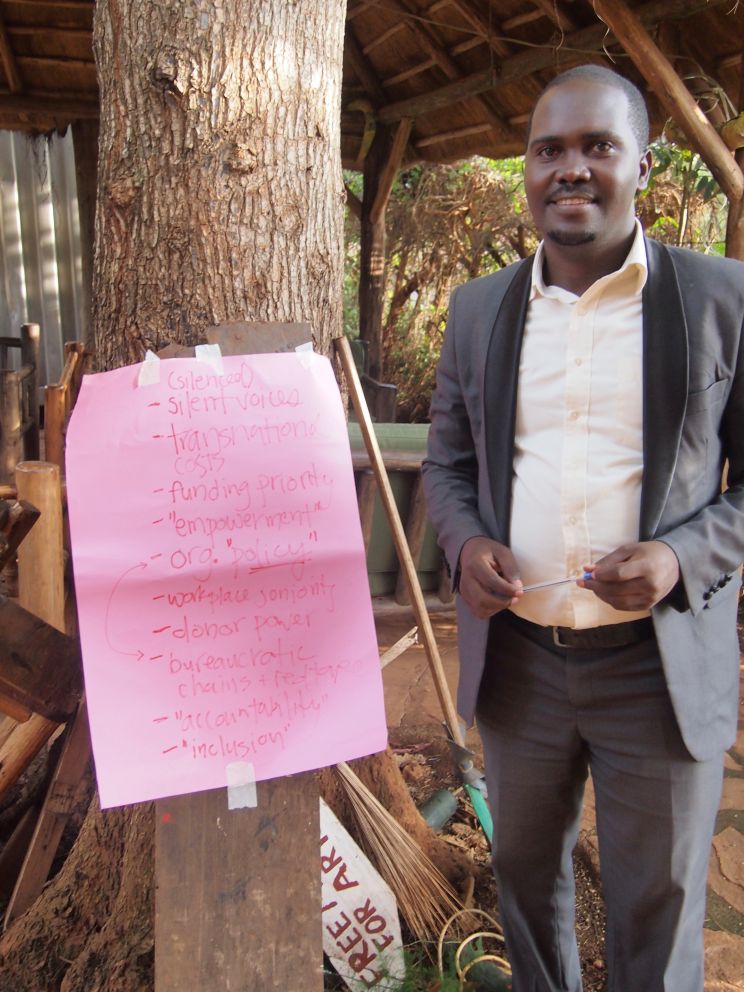 (silenced)
- silent voices
- transnational
costs
- funding priority
- "empowerment"
- org. "policy"
- workplace
- donor power
- bureaucratic
chains + red tape
- "accountability"
- "inclusion"
FREE
FOR